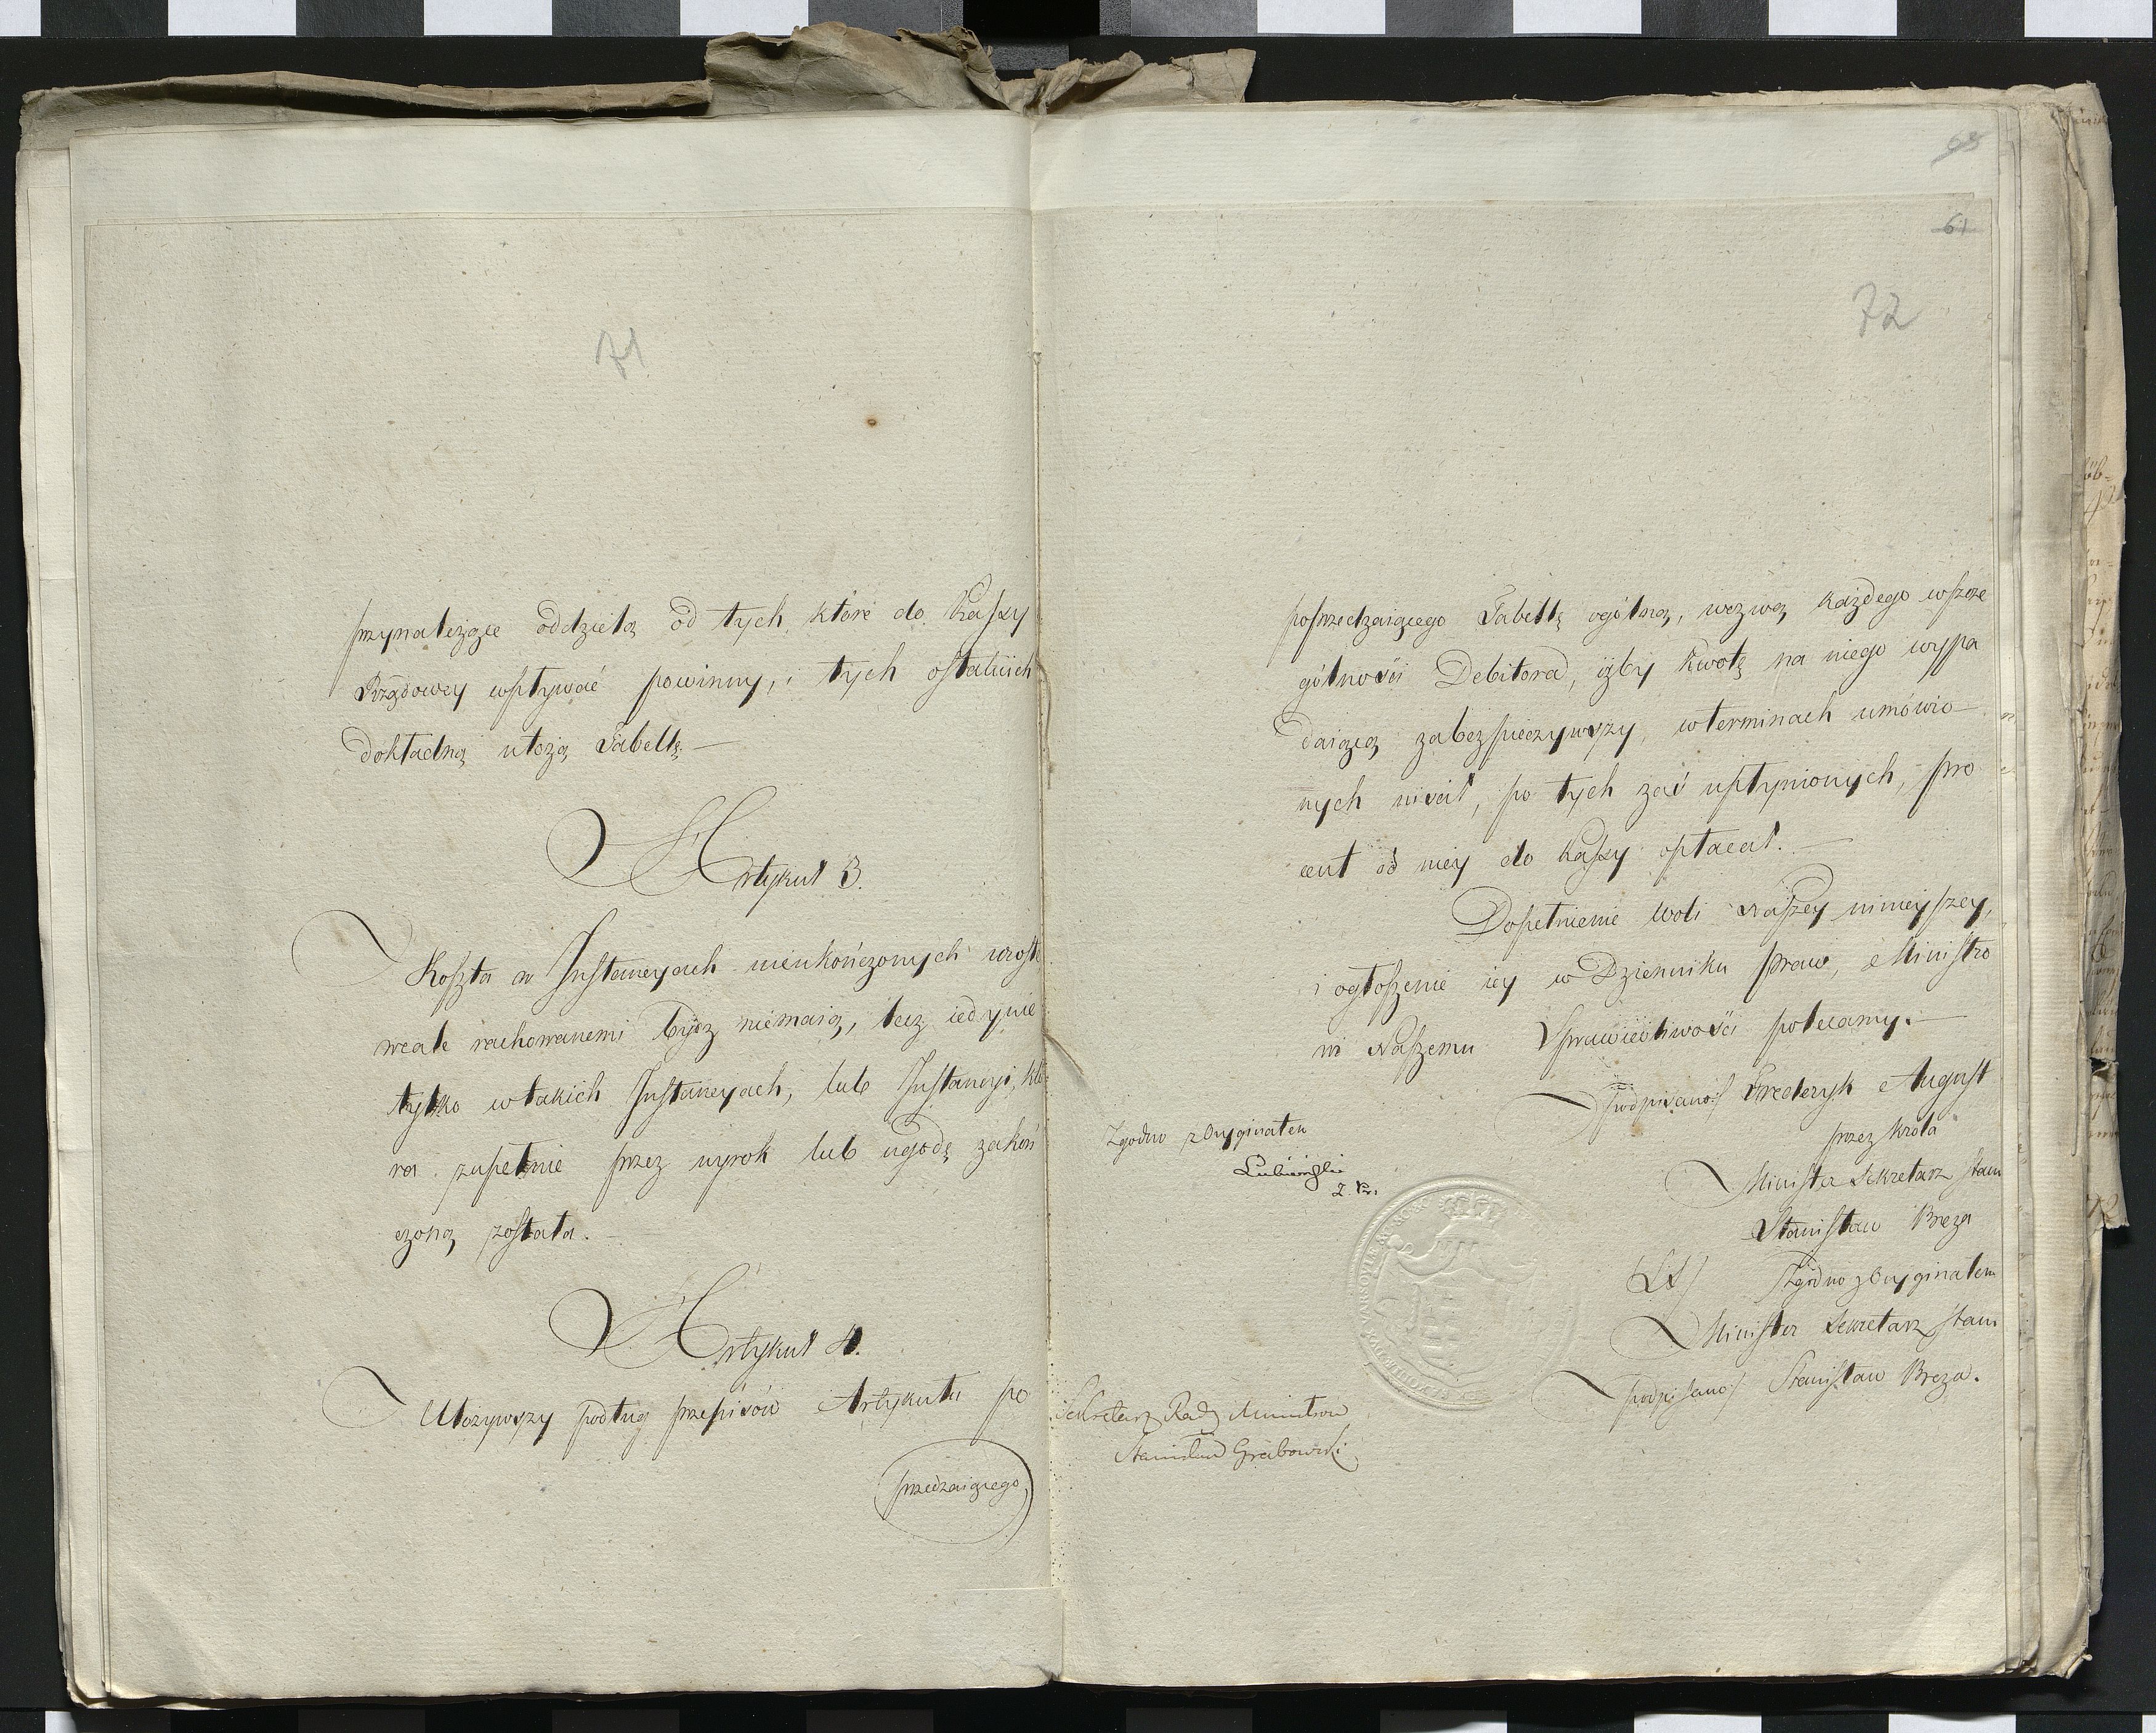 71
przynależące oddzielą od tych, które do Kassy
Rządowey wpływać powinny, i tych ostatnich
dokładną ułożą Tabellę.—
Artykuł 3.
Koszta w Instancyach nieukończonych wcale
rachowanemi bydz niemaią, lecz iedynie
tylko w takich Instancyach, lub Instancyi, któ
ra zupełnie przez wyrok lub ugodę zakoń
czoną została.—
Artykuł 4.
Ułożywszy podług przepisów Artykułu po
przedzaiącego
68
61
72
poprzedzaiącego Tabellę ogólną, wezwą każdego wszcze
gólności Debitora, iżby kwotę na niego wypa
daiącą zabezpieczywszy, w terminach umówio—
nych uiścił, po tych zaś upłynionych, pro
cent od niey do Kassy opłacał.—
Dopełnienie woli Naszey ninieyszey,
i ogłoszenie iey w Dzienniku praw, Ministro
wi Naszemu Sprawiedliwości polecamy.—
podpisano/ Fryderyk August
przez Króla
Minister Sekretarz Stanu
Stanisław Breza
(LS) Zgodno z Oryginałem
Minister Sekretarz Stanu
podpisano/ Stanisław Breza.
Zgodno z Oryginałem
Lubieński
Sekretarz Rady Ministrow
Stanisław Grabowski